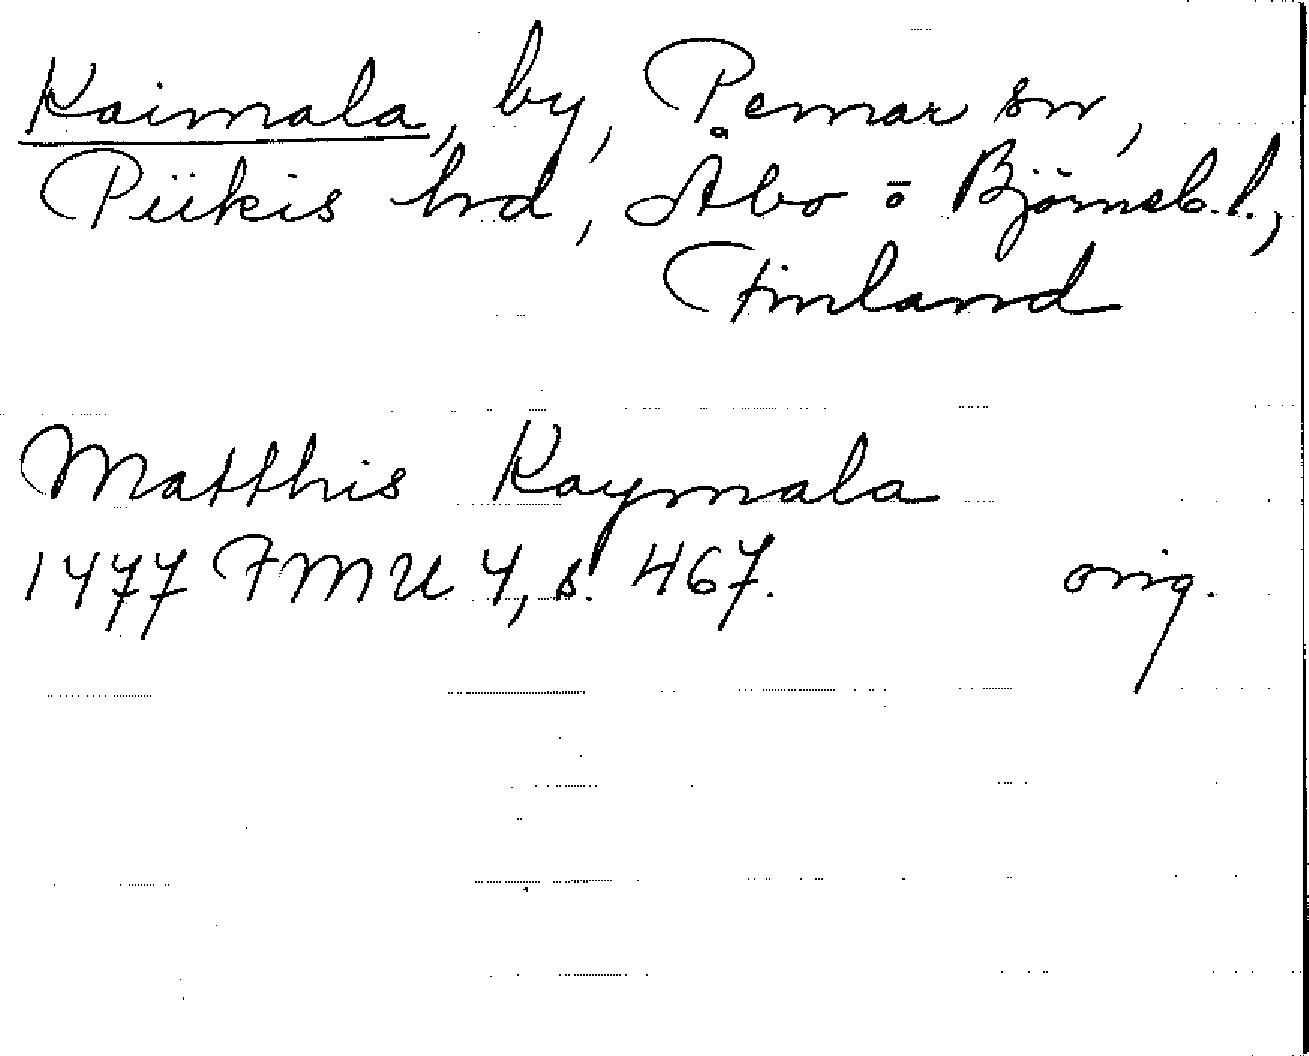 Kaimala, by, Pemar sn,
Piikis hrd, Åbo o Björneb. l.,
Finland
Matthis Kaymala
1477 FMU 4, s. 467.
orig.